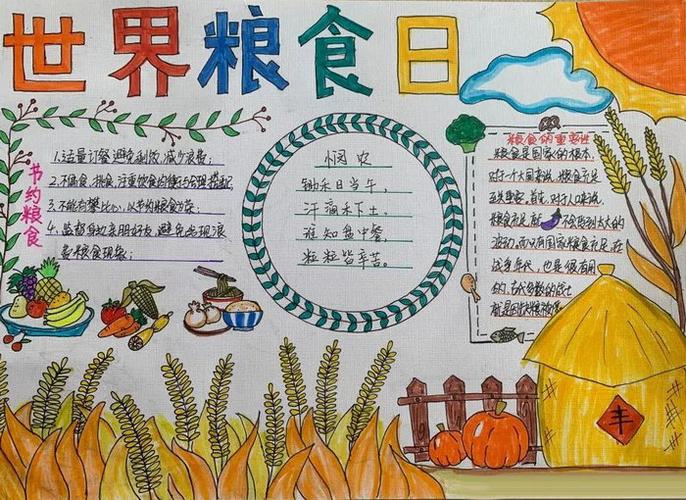 世界粮食日
节约粮食
1.适量订餐,避免剩饭,减少浪费;
2.不偏食,挑食,注重饮食均衡
3.不能有攀比心,以节约粮食为荣;
4.监督身边亲朋好友,避免出现浪
费粮食现象;
悯农
锄禾日当午,
汗滴禾下土。
谁知盘中餐,
粒粒皆辛苦。
粮食的重要性
粮食是国家的根本,
对于一个大国来说,粮食充足
至关重要。首先,对于人口来说,
粮食充足 就 不会受到太大的
波动,而只有国家粮食充足,在
战争年代,也是很有用
的,古代多数的战士
就是因为粮
丰